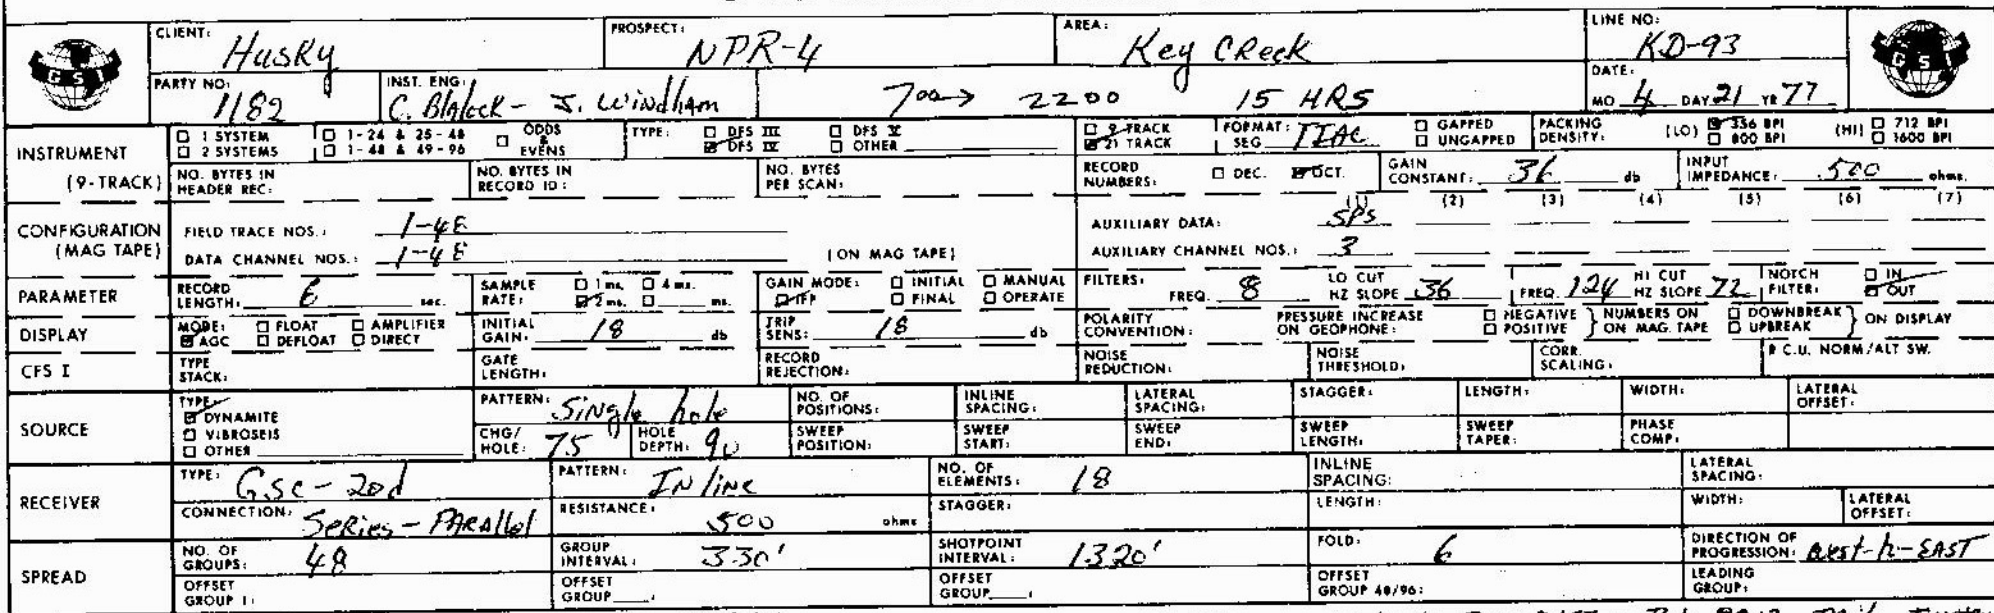 CLIENT: Husky PROSPECT: NPR-4 AREA: Key Creek LINE NO: KD-93
GSI
PARTY NO: 1182 INST. ENG: C. Blalock - J. Windham 700 → 2200 15 HRS DATE: MO 4 DAY 21 YR 77
GSI
INSTRUMENT ☐ 1 SYSTEM ☐ 1-24 & 25-48 ☐ ODDS & EVENS TYPE: ☐ DFS III ☐ DFS V ☐ 9 TRACK FORMAT: TIAC ☐ GAPPED PACKING DENSITY: (LO) ☑ 356 BPI (HI) ☐ 712 BPI
☐ 2 SYSTEMS ☐ 1-48 & 49-96 ☑ DFS IV ☐ OTHER ☑ 21 TRACK SEG ☐ UNGAPPED ☐ 800 BPI ☐ 1600 BPI
(9-TRACK) NO. BYTES IN HEADER REC: NO. BYTES IN RECORD ID: NO. BYTES PER SCAN: RECORD NUMBERS: ☐ DEC. ☑ OCT. GAIN CONSTANT: 36 db INPUT IMPEDANCE: 500 ohms.
(1) (2) (3) (4) (5) (6) (7)
CONFIGURATION (MAG TAPE) FIELD TRACE NOS.: 1-48 AUXILIARY DATA: SPS
DATA CHANNEL NOS.: 1-48 (ON MAG TAPE) AUXILIARY CHANNEL NOS.: 3
PARAMETER RECORD LENGTH: 6 sec. SAMPLE RATE: ☐ 1 ms. ☐ 4 ms. ☑ 2 ms. ☐ ms. GAIN MODE: ☐ INITIAL ☐ MANUAL ☑ IFP ☐ FINAL ☐ OPERATE FILTERS: FREQ. 8 LO CUT HZ SLOPE 36 FREQ. 124 HI CUT HZ SLOPE 72 NOTCH FILTER: ☐ IN ☑ OUT
DISPLAY MODE: ☐ FLOAT ☐ AMPLIFIER ☑ AGC ☐ DEFLOAT ☐ DIRECT INITIAL GAIN: 18 db TRIP SENS: 18 db POLARITY CONVENTION: PRESSURE INCREASE ON GEOPHONE: ☐ NEGATIVE ☐ POSITIVE } NUMBERS ON ON MAG. TAPE ☐ DOWNBREAK ☐ UPBREAK } ON DISPLAY
CFS I TYPE STACK: GATE LENGTH: RECORD REJECTION: NOISE REDUCTION: NOISE THRESHOLD: CORR. SCALING: R C.U. NORM/ALT SW.
SOURCE TYPE ☑ DYNAMITE ☐ VIBROSEIS ☐ OTHER PATTERN: Single hole NO. OF POSITIONS: INLINE SPACING: LATERAL SPACING: STAGGER: LENGTH: WIDTH: LATERAL OFFSET:
CHG/HOLE: 75 HOLE DEPTH: 90 SWEEP POSITION: SWEEP START: SWEEP END: SWEEP LENGTH: SWEEP TAPER: PHASE COMP:
RECEIVER TYPE: Gsc-20d PATTERN: Inline NO. OF ELEMENTS: 18 INLINE SPACING: LATERAL SPACING:
CONNECTION: Series-Parallel RESISTANCE: 500 ohms STAGGER: LENGTH: WIDTH: LATERAL OFFSET:
SPREAD NO. OF GROUPS: 48 GROUP INTERVAL: 330' SHOTPOINT INTERVAL: 1320' FOLD: 6 DIRECTION OF PROGRESSION: West-to-EAST
OFFSET GROUP 1: OFFSET GROUP : OFFSET GROUP : OFFSET GROUP 48/96: LEADING GROUP: